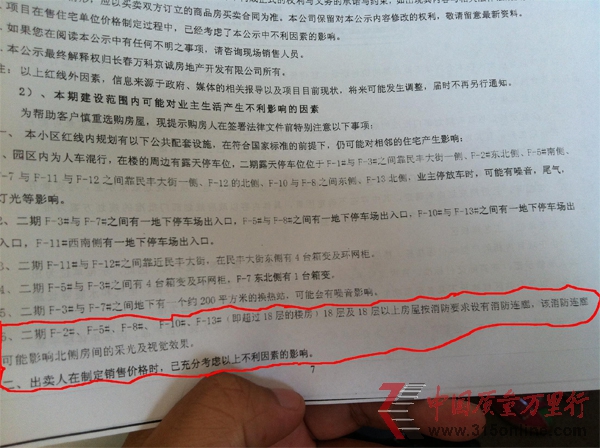 项目在售住宅单位价格制定过程中,已经考虑了本公示中不利因素的影响。
如果您在阅读本公示中有任何不明之事项,请咨询现场销售人员。
本公示最终解释权归长春万科京诚房地产开发有限公司所有。
注:以上红线外因素,信息来源于政府、媒体的相关报导以及项目目前现状,将来可能发生调整,届时不再另行通知。
2)、本期建设范围内可能对业主生活产生不利影响的因素
为帮助客户慎重选购房屋,现提示购房人在签署法律文件前特别注意以下事项:
一、本小区红线内规划有以下公共配套设施,在符合国家标准的前提下,仍可能对相邻的住宅产生影响:
、园区内为人车混行,在楼的周边有露天停车位,二期露天停车位位于F-1#与F-3#之间靠民丰大街一侧、F-2#东北侧、F-5#南侧、
F-7 与 F-11 与 F-12 之间靠民丰大街一侧、F-12 的北侧、F-10 与 F-8 之间东侧、F-13 北侧,业主停放车时,可能有噪音,尾气,
灯光等影响。
2、二期 F-3#与 F-7#之间有一地下停车场出入口,F-5#与 F-8#之间有一地下停车场出入口,F-10#与 F-13#之间有一地下停车场出
入口,F-11#西南侧有一地下停车场出入口。
3、二期 F-11#与 F-12#之间靠近民丰大街,在民丰大街东侧有 4 台箱变及环网柜。
4、二期 F-5#与 F-3#之间有 4 台箱变及环网柜,F-7 东北侧有 1 台箱变。
5、二期 F-3#与 F-7#之间地下有一个约 200 平方米的换热站,可能会有噪音影响。
6、二期 F-2#、F-5#、F-8#、F-10#、F-13#(即超过 18 层的楼房)18 层及 18 层以上房屋按消防要求设有消防连廊,该消防连廊
可能影响北侧房间的采光及视觉效果。
二、出卖人在制定销售价格时,已充分考虑以上不利因素的影响。
7
中国质量万里行
www.315online.com